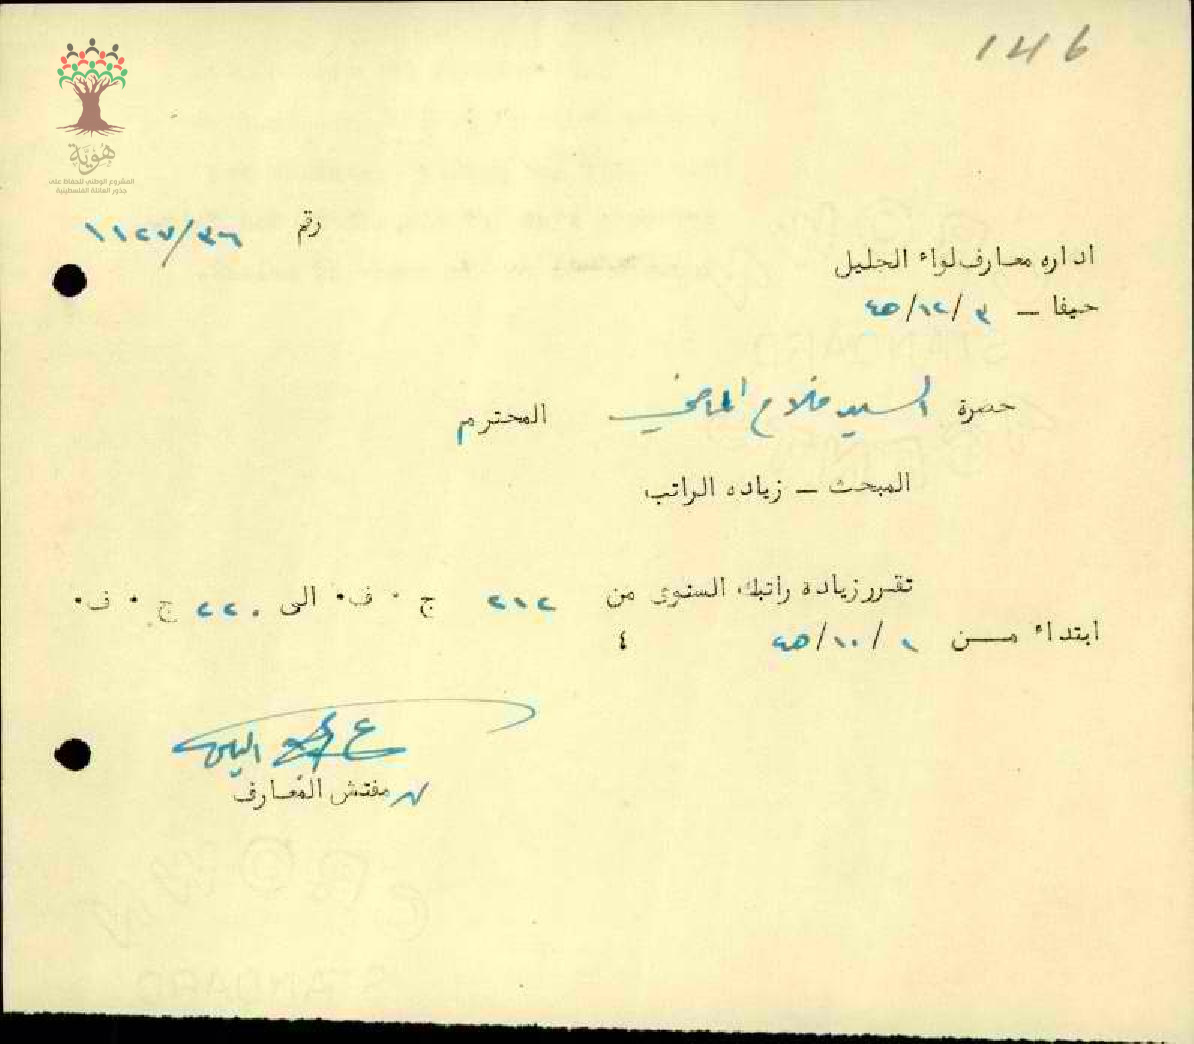 146
هُوِيَّة
المشروع الوطني للحفاظ على
جذور العائلة الفلسطينية
رقم ١١٢٧/٣٦
اداره معارف لواء الجليل
حيفا ـ ٣ /١٢/ ٤٥
حضرة السيد فلاح الماضي المحترم
المبحث ـ زياده الراتب
تقرر زيادة راتبك السنوى من ٢١٢ ج ٠ ف٠ الى ٢٢٠ ج ٠ ف٠
ابتداء مـــن ١ /١٠/ ٤٥ ٤
مفتش المعارف